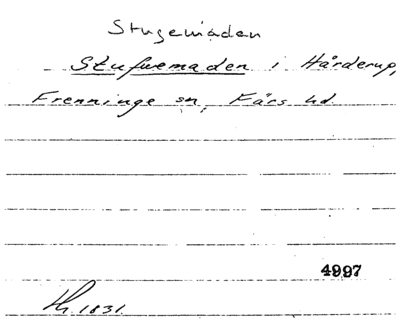 Stugemaden
Stufwemaden i Hårderup,
Frenninge sn, Färs hd.
4997
1831.